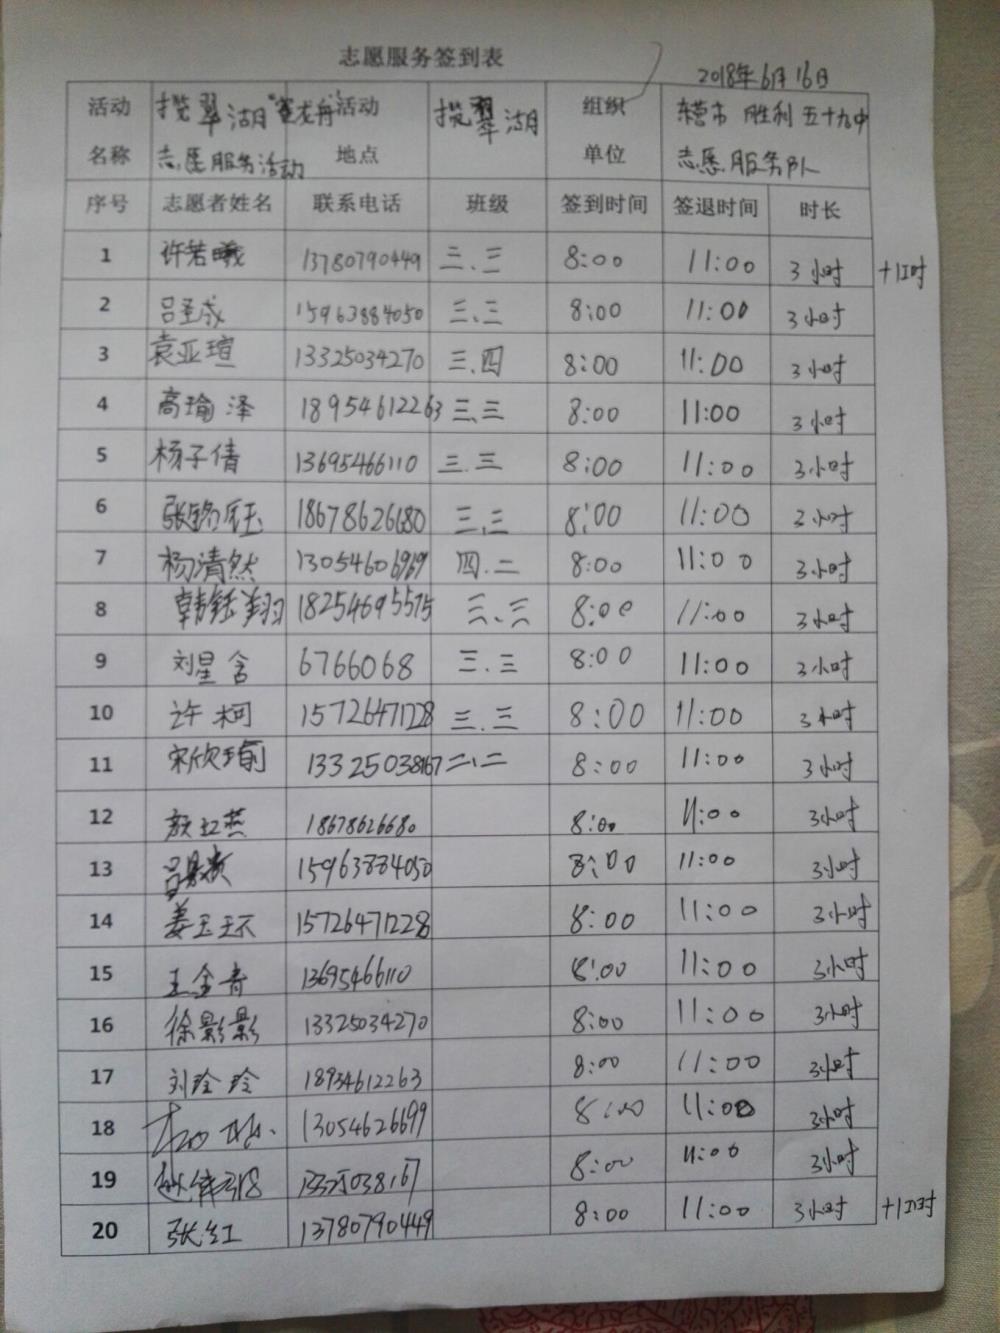 志愿服务签到表
2018年6月16日
活动名称 揽翠湖"赛龙舟"志愿服务活动 活动地点 揽翠湖 组织单位 东营市胜利五十九中志愿服务队
序号 志愿者姓名 联系电话 班级 签到时间 签退时间 时长
1 许若曦 13780790449 三.三 8:00 11:00 3小时 +1小时
2 吕圣成 15963884050 三.三 8:00 11:00 3小时
3 袁亚瑄 13325034270 三.四 8:00 11:00 3小时
4 高瑜泽 18954612263 三.三 8:00 11:00 3小时
5 杨子倩 13695466110 三.三 8:00 11:00 3小时
6 张铭钰 18678626680 三.三 8:00 11:00 3小时
7 杨清然 13054606969 四.二 8:00 11:00 3小时
8 韩钰翔 18254695575 三.三 8:00 11:00 3小时
9 刘星含 6766068 三.三 8:00 11:00 3小时
10 许柯 15726471228 三.三 8:00 11:00 3小时
11 宋欣瑜 13325038167 二.二 8:00 11:00 3小时
12 颜红燕 18678626680 8:00 11:00 3小时
13 吕 15963884050 8:00 11:00 3小时
14 姜玉环 15726471228 8:00 11:00 3小时
15 王金青 13695466110 8:00 11:00 3小时
16 徐影影 13325034270 8:00 11:00 3小时
17 刘玲玲 18954612263 8:00 11:00 3小时
18 13054626699 8:00 11:00 3小时
19 13325038167 8:00 11:00 3小时
20 张红 13780790449 8:00 11:00 3小时 +1小时